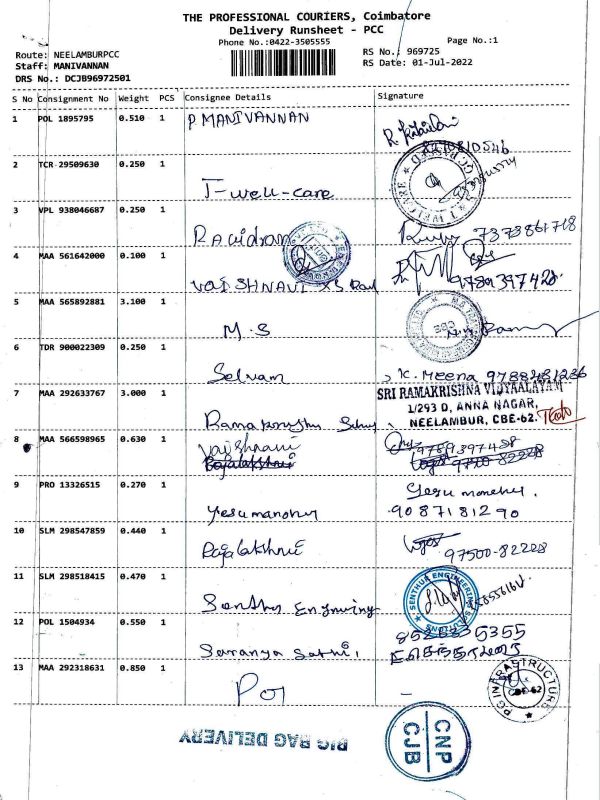 THE PROFESSIONAL COURIERS, Coimbatore
Delivery Runsheet - PCC
Phone No.:0422-3505555
Page No.:1
Route: NEELAMBURPCC
RS No.: 969725
Staff: MANIVANNAN
RS Date: 01-Jul-2022
DRS No.: DCJB96972501
S No Consignment No Weight PCS Consignee Details Signature
1 POL 1895795 0.510 1 P MANIVANNAN
2 TCR 29509630 0.250 1 T-well-care
3 VPL 938046687 0.250 1 Ravidran 7373861718
4 MAA 561642000 0.100 1 VAISHNAVI 9789397428
5 MAA 565892881 3.100 1 M.S
6 TDR 900022309 0.250 1 Selvam K. Meena 9788481236
7 MAA 292633767 3.000 1 SRI RAMAKRISHNA VIDYAALAYAM
1/293 D, ANNA NAGAR,
NEELAMBUR, CBE-62.
8 MAA 566598965 0.630 1 Vaishnavi 9789397428
Rajalakshmi 9750-82228
9 PRO 13326515 0.270 1 Yesu manohar Yesu manohar.
9087181290
10 SLM 298547859 0.440 1 Rajalakshmi 97500-82228
11 SLM 298518415 0.470 1 Senthur Engineering SENTHUR ENGINEERING SOLUTIONS
12 POL 1504934 0.550 1 Saranya Sathi 8526835355
13 MAA 292318631 0.850 1 PG INFRASTRUCTURE
CBE-62
BIG BAG DELIVERY
CNP
CJB